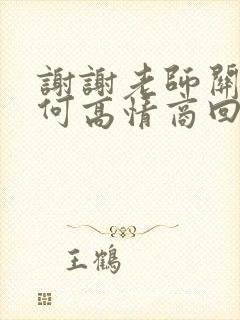 謝謝老師關
何高情商回
王鶴